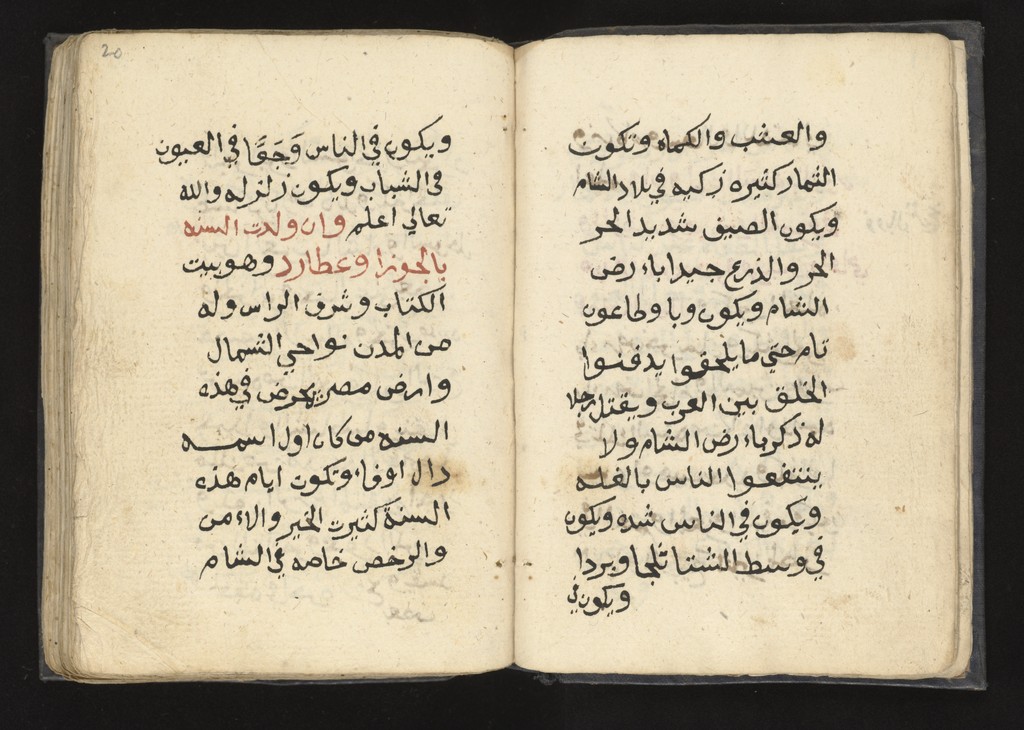 والعشب والكماه وتكون
الثمار كثيره زكيه في بلاد الشام
ويكون الصيف شديد الحر
الحر والذرع جيدا باء رض
الشام ويكون وبا وطاعون
تام حتي ما يلحقوا يدفنوا
الخلق بين العرب ويقتل رجلا
له ذكر باء رض الشام ولا
ينتفعوا الناس بالغله
ويكون في الناس شده ويكون
في وسط الشتا ثلجا وبردا
ويكون في
20
ويكون في الناس وجعا في العيون
في الشباب ويكون زلزله والله
تعالي اعلم وان ولدت السنه
بالجوزا وعطارد وهو بيت
الكتاب وشرف الراس وله
من المدن نواحي الشمال
وارض مصر يمرض في هذه
السنه من كان اول اسمه
دال اوفاء وتكون ايام هذه
السنة كثيرت الخير والاءمن
والرخص خاصه في الشام